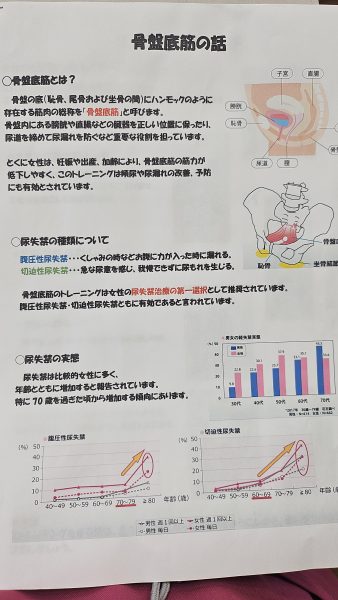 骨盤底筋の話
〇骨盤底筋とは？
骨盤の底(恥骨、尾骨および坐骨の間)にハンモックのように
存在する筋肉の総称を「骨盤底筋」と呼びます。
骨盤内にある膀胱や直腸などの臓器を正しい位置に保ったり、
尿道を締めて尿漏れを防ぐなど重要な役割を担っています。
とくに女性は、妊娠や出産、加齢により、骨盤底筋の筋力が
低下しやすく、このトレーニングは頻尿や尿漏れの改善、予防
にも有効とされています。
子宮
直腸
膀胱
恥骨
尿道
膣
恥骨
坐骨結節
〇尿失禁の種類について
腹圧性尿失禁・・・くしゃみの時などお腹に力が入った時に漏れる。
切迫性尿失禁・・・急な尿意を感じ、我慢できずに尿もれを生じる。
骨盤底筋のトレーニングは女性の尿失禁治療の第一選択として推奨されています。
腹圧性尿失禁・切迫性尿失禁ともに有効であると言われています。
〇尿失禁の実態
尿失禁は比較的女性に多く、
年齢とともに増加すると報告されています。
特に 70 歳を過ぎた頃から増加する傾向にあります。
30代
40代
50代
60代
70代
(%)
50
40
30
20
10
0
腹圧性尿失禁
40〜49
50〜59
60〜69
70〜79
≧80
年齢(歳)
(%)
50
40
30
20
10
0
切迫性尿失禁
40〜49
50〜59
60〜69
70〜79
≧80
年齢(歳)
男性 週1回以上
女性 週1回以上
男性 毎日
女性 毎日